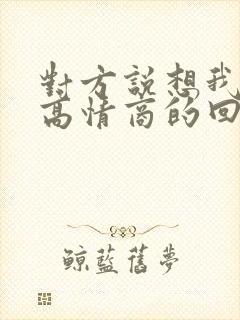 對方說想我
高情商的回
鯨藍舊夢